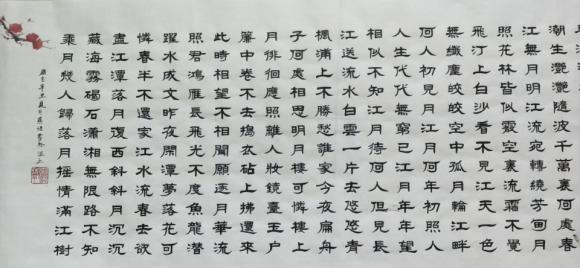 潮生灩灩隨波千萬裏何處春
江無月明江流宛轉繞芳甸月
照花林皆似霰空裏流霜不覺
飛汀上白沙看不見江天一色
無纖塵皎皎空中孤月輪江畔
何人初見月江月何年初照人
人生代代無窮已江月年年望
相似不知江月待何人但見長
江送流水白雲一片去悠悠青
楓浦上不勝愁誰家今夜扁舟
子何處相思明月樓可憐樓上
月徘徊應照離人妝鏡臺玉戶
簾中卷不去搗衣砧上拂還來
此時相望不相聞願逐月華流
照君鴻雁長飛光不度魚龍潛
躍水成文昨夜閒潭夢落花可
憐春半不還家江水流春去欲
盡江潭落月復西斜斜月沉沉
藏海霧碣石瀟湘無限路不知
乘月幾人歸落月搖情滿江樹